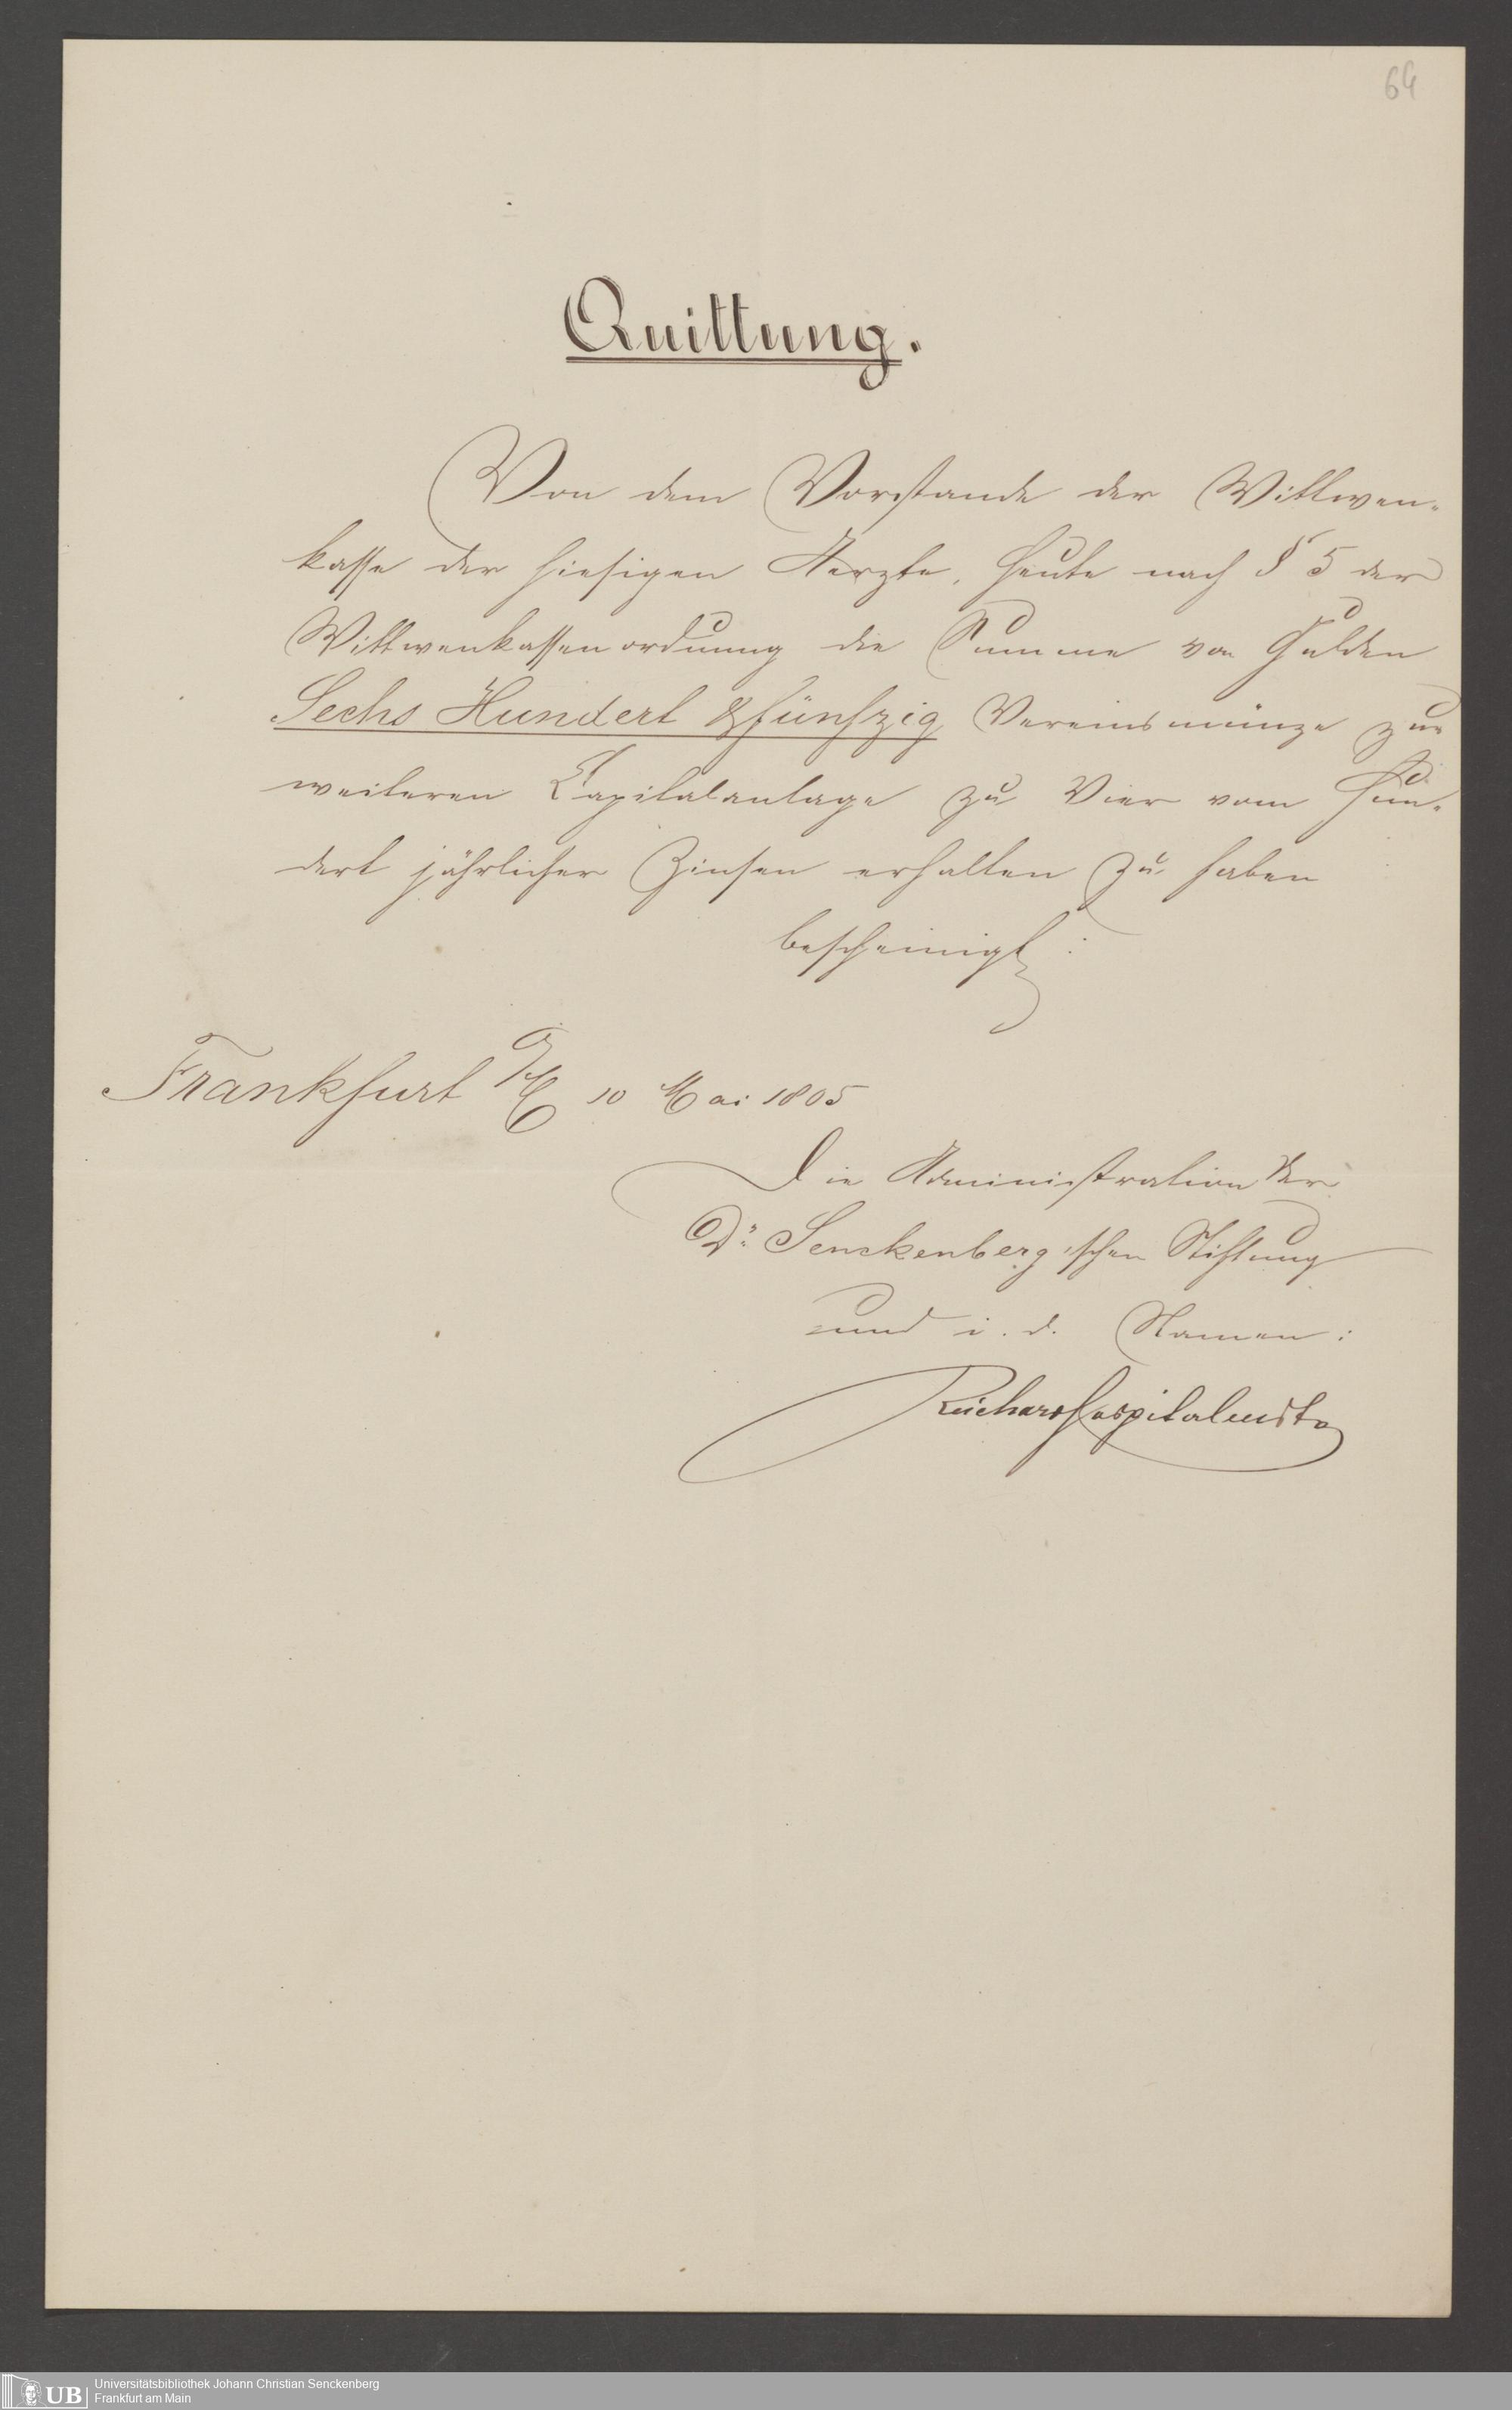 64
Quittung.
Von dem Vorstande der Wittwen-
kasse der hiesigen Aerzte, heute nach § 5 der
Wittwenkassenordnung die Summe von Gulden
Sechs Hundert & fünfzig Vereinsmünze zur
weiteren Capitalanlage zu Vier vom Hun-
dert jährlicher Zinsen erhalten zu haben
bescheinigt:
Frankfurt a/M 10 Mai 1865
Die Administration der
Dr. Senckenberg'schen Stiftung
und i. d. Namen:
UB
Universitätsbibliothek Johann Christian Senckenberg
Frankfurt am Main